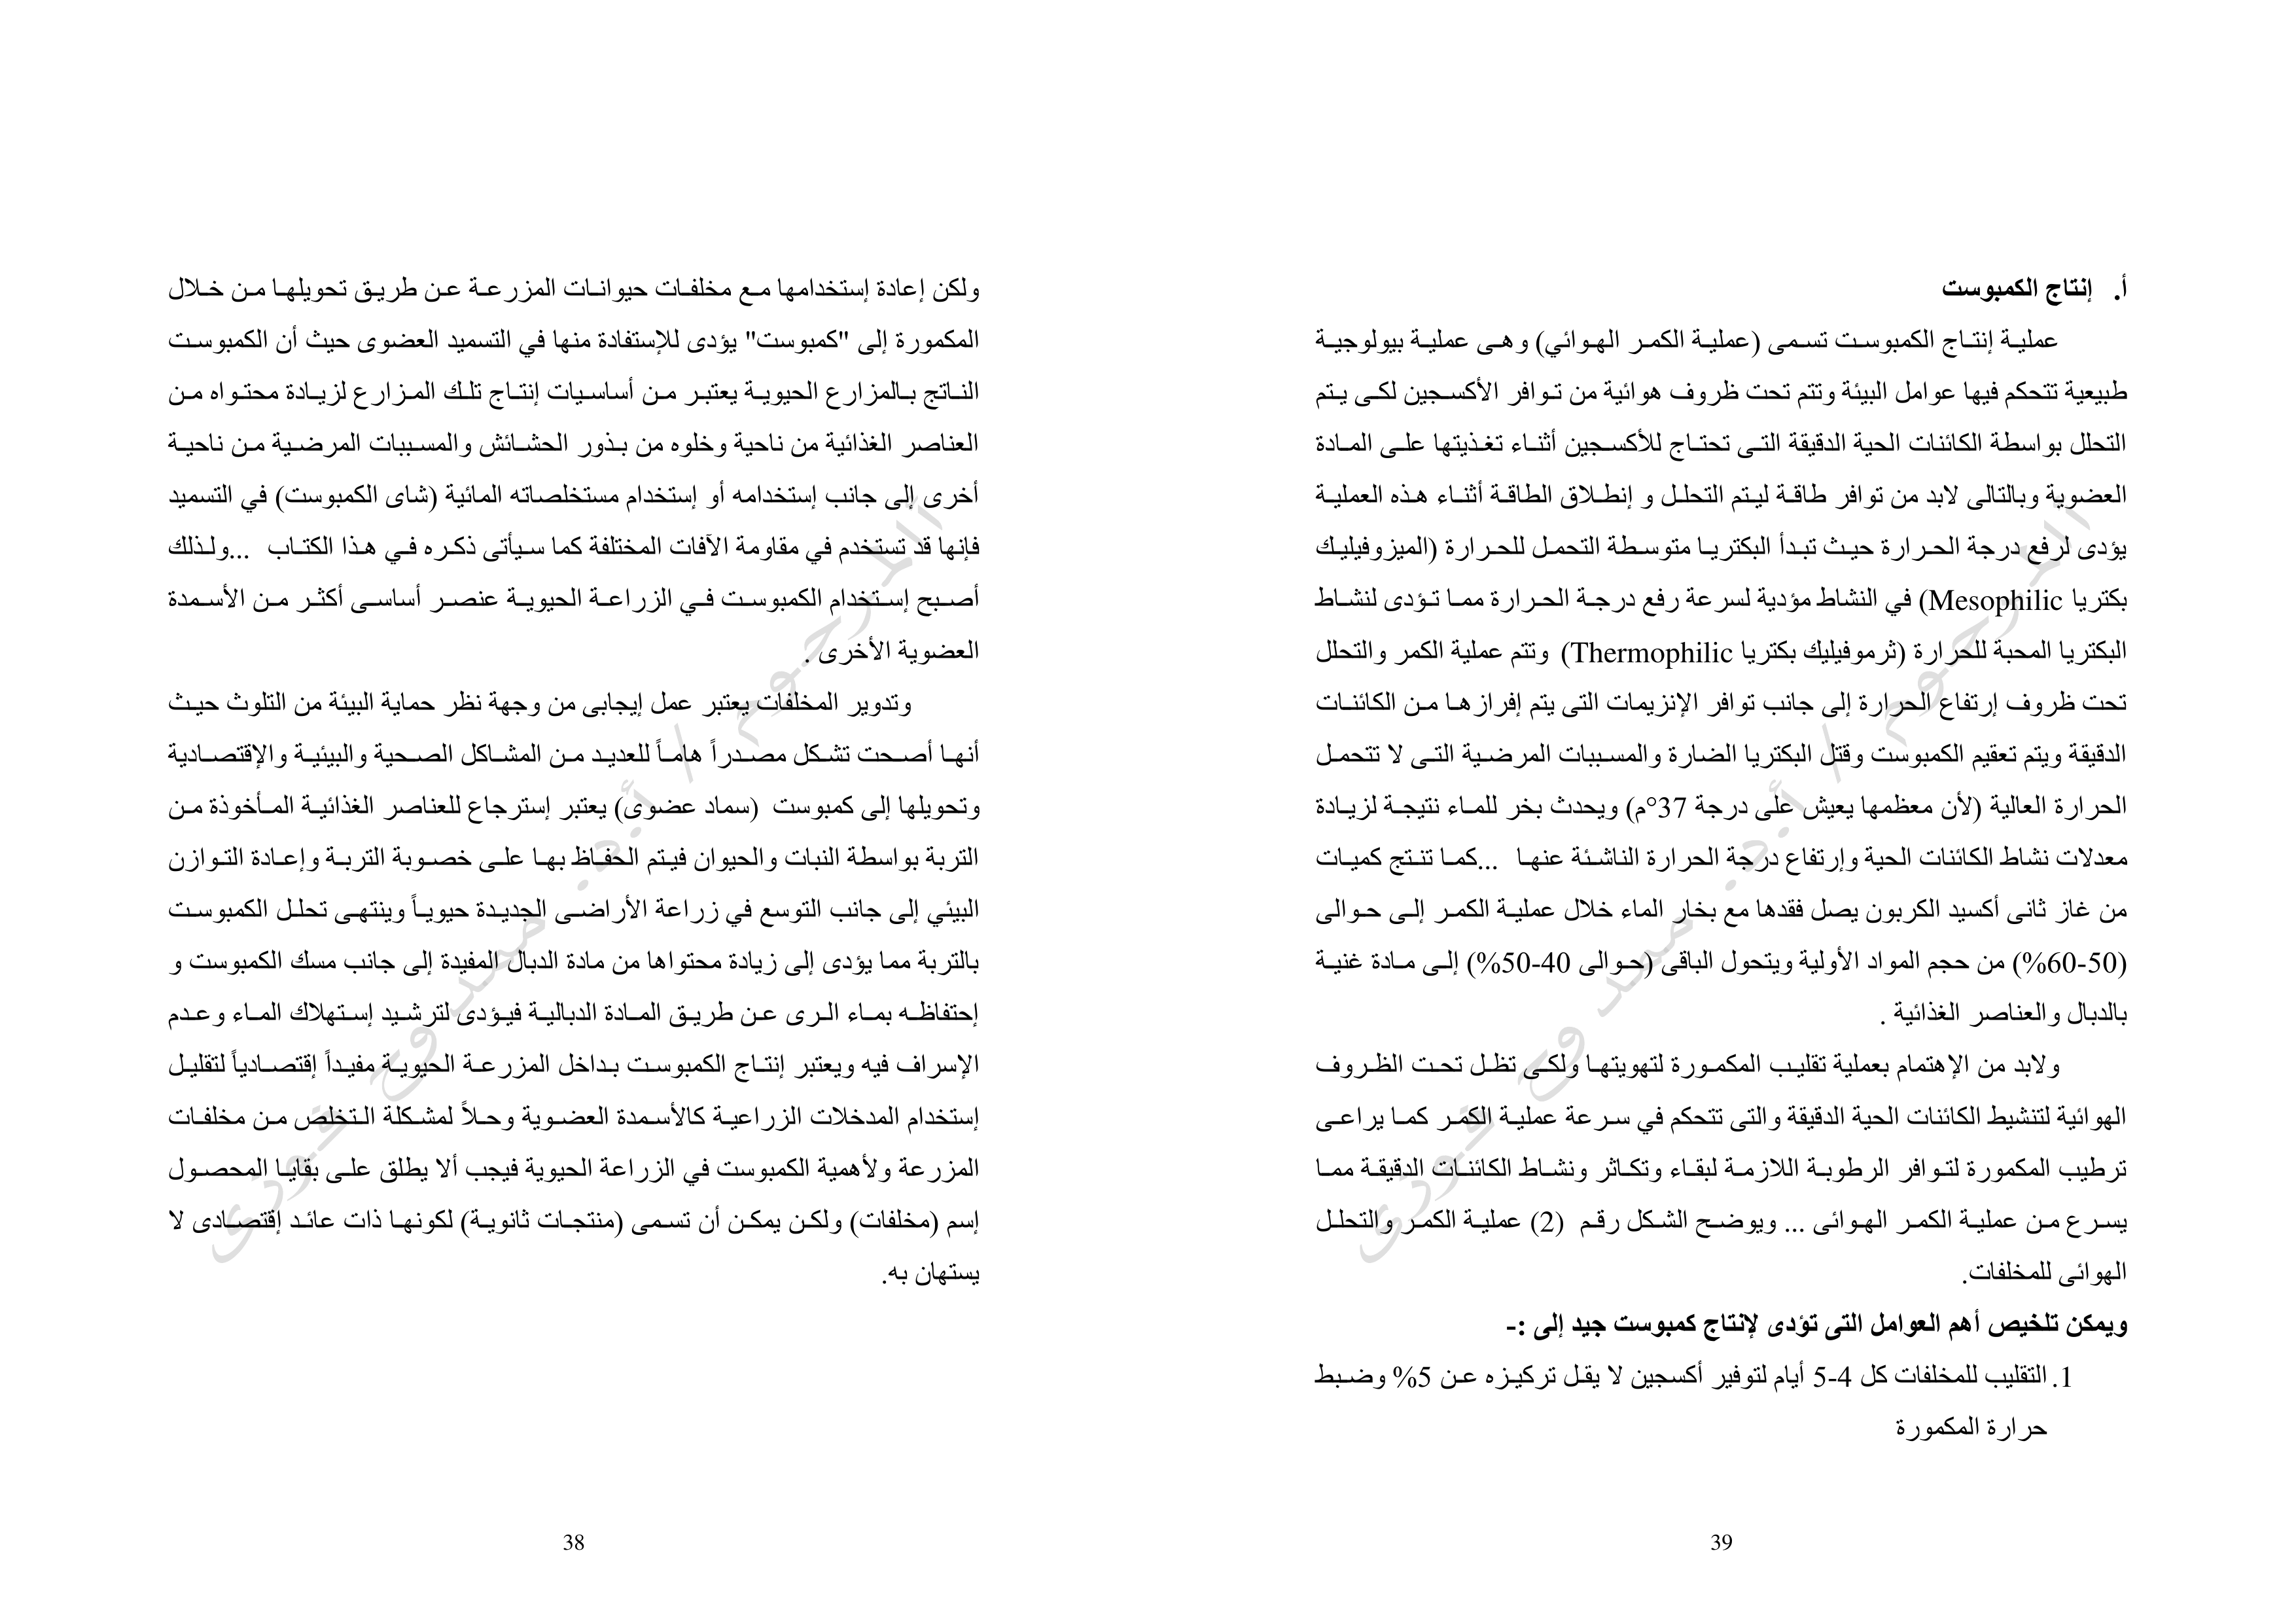 ولكن إعادة إستخدامها مع مخلفات حيوانات المزرعة عن طريق تحويلها من خلال
المكمورة إلى "كمبوست" يؤدى للإستفادة منها في التسميد العضوى حيث أن الكمبوست
الناتج بالمزارع الحيوية يعتبر من أساسيات إنتاج تلك المزارع لزيادة محتواه من
العناصر الغذائية من ناحية وخلوه من بذور الحشائش والمسببات المرضية من ناحية
أخرى إلى جانب إستخدامه أو إستخدام مستخلصاته المائية (شاى الكمبوست) في التسميد
فإنها قد تستخدم في مقاومة الآفات المختلفة كما سيأتى ذكره في هذا الكتاب ...ولذلك
أصبح إستخدام الكمبوست في الزراعة الحيوية عنصر أساسى أكثر من الأسمدة
العضوية الأخرى .
وتدوير المخلفات يعتبر عمل إيجابى من وجهة نظر حماية البيئة من التلوث حيث
أنها أصحت تشكل مصدراً هاماً للعديد من المشاكل الصحية والبيئية والإقتصادية
وتحويلها إلى كمبوست (سماد عضوى) يعتبر إسترجاع للعناصر الغذائية المأخوذة من
التربة بواسطة النبات والحيوان فيتم الحفاظ بها على خصوبة التربة وإعادة التوازن
البيئي إلى جانب التوسع في زراعة الأراضى الجديدة حيوياً وينتهى تحلل الكمبوست
بالتربة مما يؤدى إلى زيادة محتواها من مادة الدبال المفيدة إلى جانب مسك الكمبوست و
إحتفاظه بماء الرى عن طريق المادة الدبالية فيؤدى لترشيد إستهلاك الماء وعدم
الإسراف فيه ويعتبر إنتاج الكمبوست بداخل المزرعة الحيوية مفيداً إقتصادياً لتقليل
إستخدام المدخلات الزراعية كالأسمدة العضوية وحلاً لمشكلة التخلص من مخلفات
المزرعة ولأهمية الكمبوست في الزراعة الحيوية فيجب ألا يطلق على بقايا المحصول
إسم (مخلفات) ولكن يمكن أن تسمى (منتجات ثانوية) لكونها ذات عائد إقتصادى لا
يستهان به.
المرحوم / أ.د. ممدوح فوزى
38
أ. إنتاج الكمبوست
عملية إنتاج الكمبوست تسمى (عملية الكمر الهوائي) وهى عملية بيولوجية
طبيعية تتحكم فيها عوامل البيئة وتتم تحت ظروف هوائية من توافر الأكسجين لكى يتم
التحلل بواسطة الكائنات الحية الدقيقة التى تحتاج للأكسجين أثناء تغذيتها على المادة
العضوية وبالتالى لابد من توافر طاقة ليتم التحلل و إنطلاق الطاقة أثناء هذه العملية
يؤدى لرفع درجة الحرارة حيث تبدأ البكتريا متوسطة التحمل للحرارة (الميزوفيليك
بكتريا Mesophilic) في النشاط مؤدية لسرعة رفع درجة الحرارة مما تؤدى لنشاط
البكتريا المحبة للحرارة (ثرموفيليك بكتريا Thermophilic) وتتم عملية الكمر والتحلل
تحت ظروف إرتفاع الحرارة إلى جانب توافر الإنزيمات التى يتم إفرازها من الكائنات
الدقيقة ويتم تعقيم الكمبوست وقتل البكتريا الضارة والمسببات المرضية التى لا تتحمل
الحرارة العالية (لأن معظمها يعيش على درجة 37°م) ويحدث بخر للماء نتيجة لزيادة
معدلات نشاط الكائنات الحية وإرتفاع درجة الحرارة الناشئة عنها ...كما تنتج كميات
من غاز ثانى أكسيد الكربون يصل فقدها مع بخار الماء خلال عملية الكمر إلى حوالى
(50-60%) من حجم المواد الأولية ويتحول الباقى (حوالى 40-50%) إلى مادة غنية
بالدبال والعناصر الغذائية .
ولابد من الإهتمام بعملية تقليب المكمورة لتهويتها ولكى تظل تحت الظروف
الهوائية لتنشيط الكائنات الحية الدقيقة والتى تتحكم في سرعة عملية الكمر كما يراعى
ترطيب المكمورة لتوافر الرطوبة اللازمة لبقاء وتكاثر ونشاط الكائنات الدقيقة مما
يسرع من عملية الكمر الهوائى ... ويوضح الشكل رقم (2) عملية الكمر والتحلل
الهوائى للمخلفات.
ويمكن تلخيص أهم العوامل التى تؤدى لإنتاج كمبوست جيد إلى :-
1. التقليب للمخلفات كل 4-5 أيام لتوفير أكسجين لا يقل تركيزه عن 5% وضبط
حرارة المكمورة
المرحوم / أ.د. ممدوح فوزى
39